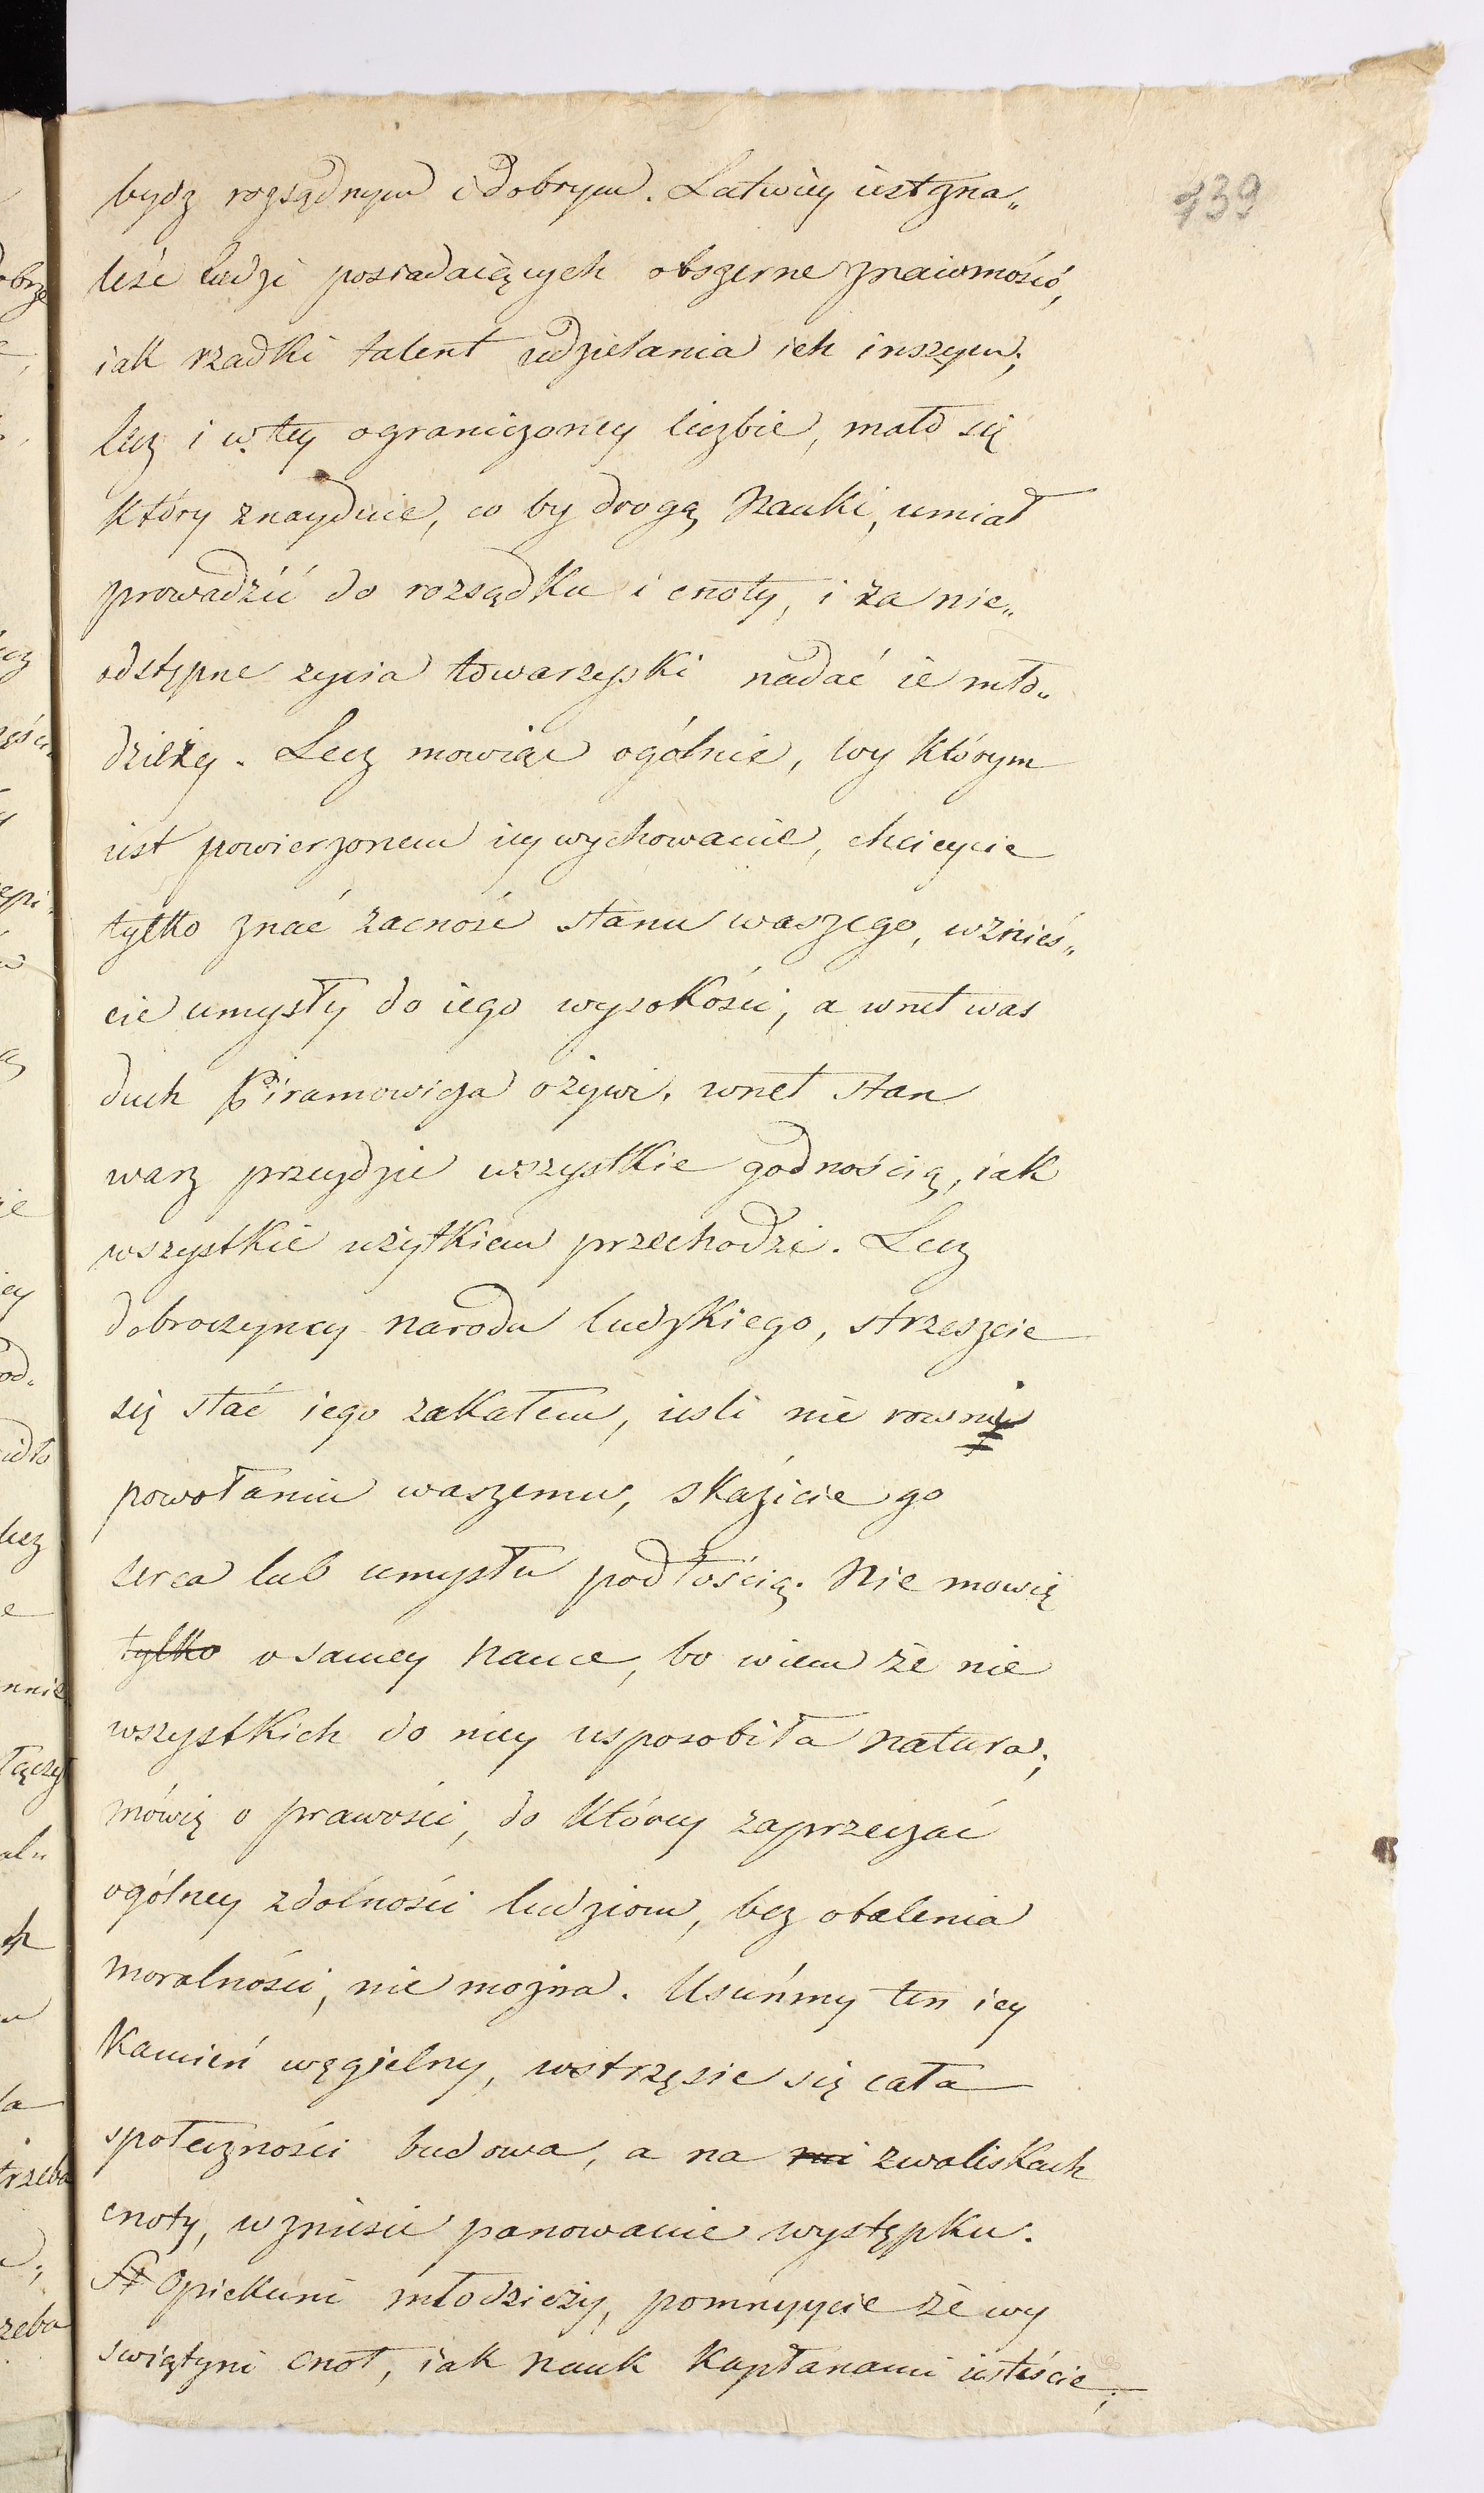 139
bydz rozsądnym i dobrym. Łatwiey iest zna„
leśc ludzi posiadaiących obszerne znaiomości,
iak rzadki talent udzielania ich inszym;
lecz i w tey ograniczoney liczbie, mało się
który znayduie, co by drogą Nauki, umiał
prowadzić do rozsądku i cnoty, i za nie„
odstępne zycia towarzyszki nadać ie mło„
dzieży. Lecz mowiąc ogólnie, wy którym
iest powierzonem iey wychowanie, chcieycie
tylko znać zacnośc stanu waszego, wznieś„
cie umysły do iego wysokości, a wnet was
duch Piramowicza ożywi, wnet stan
wasz przeydzie wszystkie godnością, iak
wszystkie użytkiem przechodzi. Lecz
dobroczyncy narodu ludzkiego, strzeszcie
się stać iego zakałem, iesli nie rowni
powołaniu waszemu, skazicie go
serca lub umysłu podłością. Nie mowię
tylko o samey nauce, bo wiem że nie
wszystkich do niey usposobiła natura;
mówię o prawości, do którey zaprzeczać
ogólney zdolności ludziom, bez obalenia
moralności, nie mozna. Usuńmy ten iey
kamień węgielny, wstrzęsie się cała
społeczności budowa, a na zwaliskach
cnoty, wzniesie panowanie występku.
Opiekuni młodzieży, pomnyycie że wy
swiątyni cnot, iak nauk kapłanami iesteście;